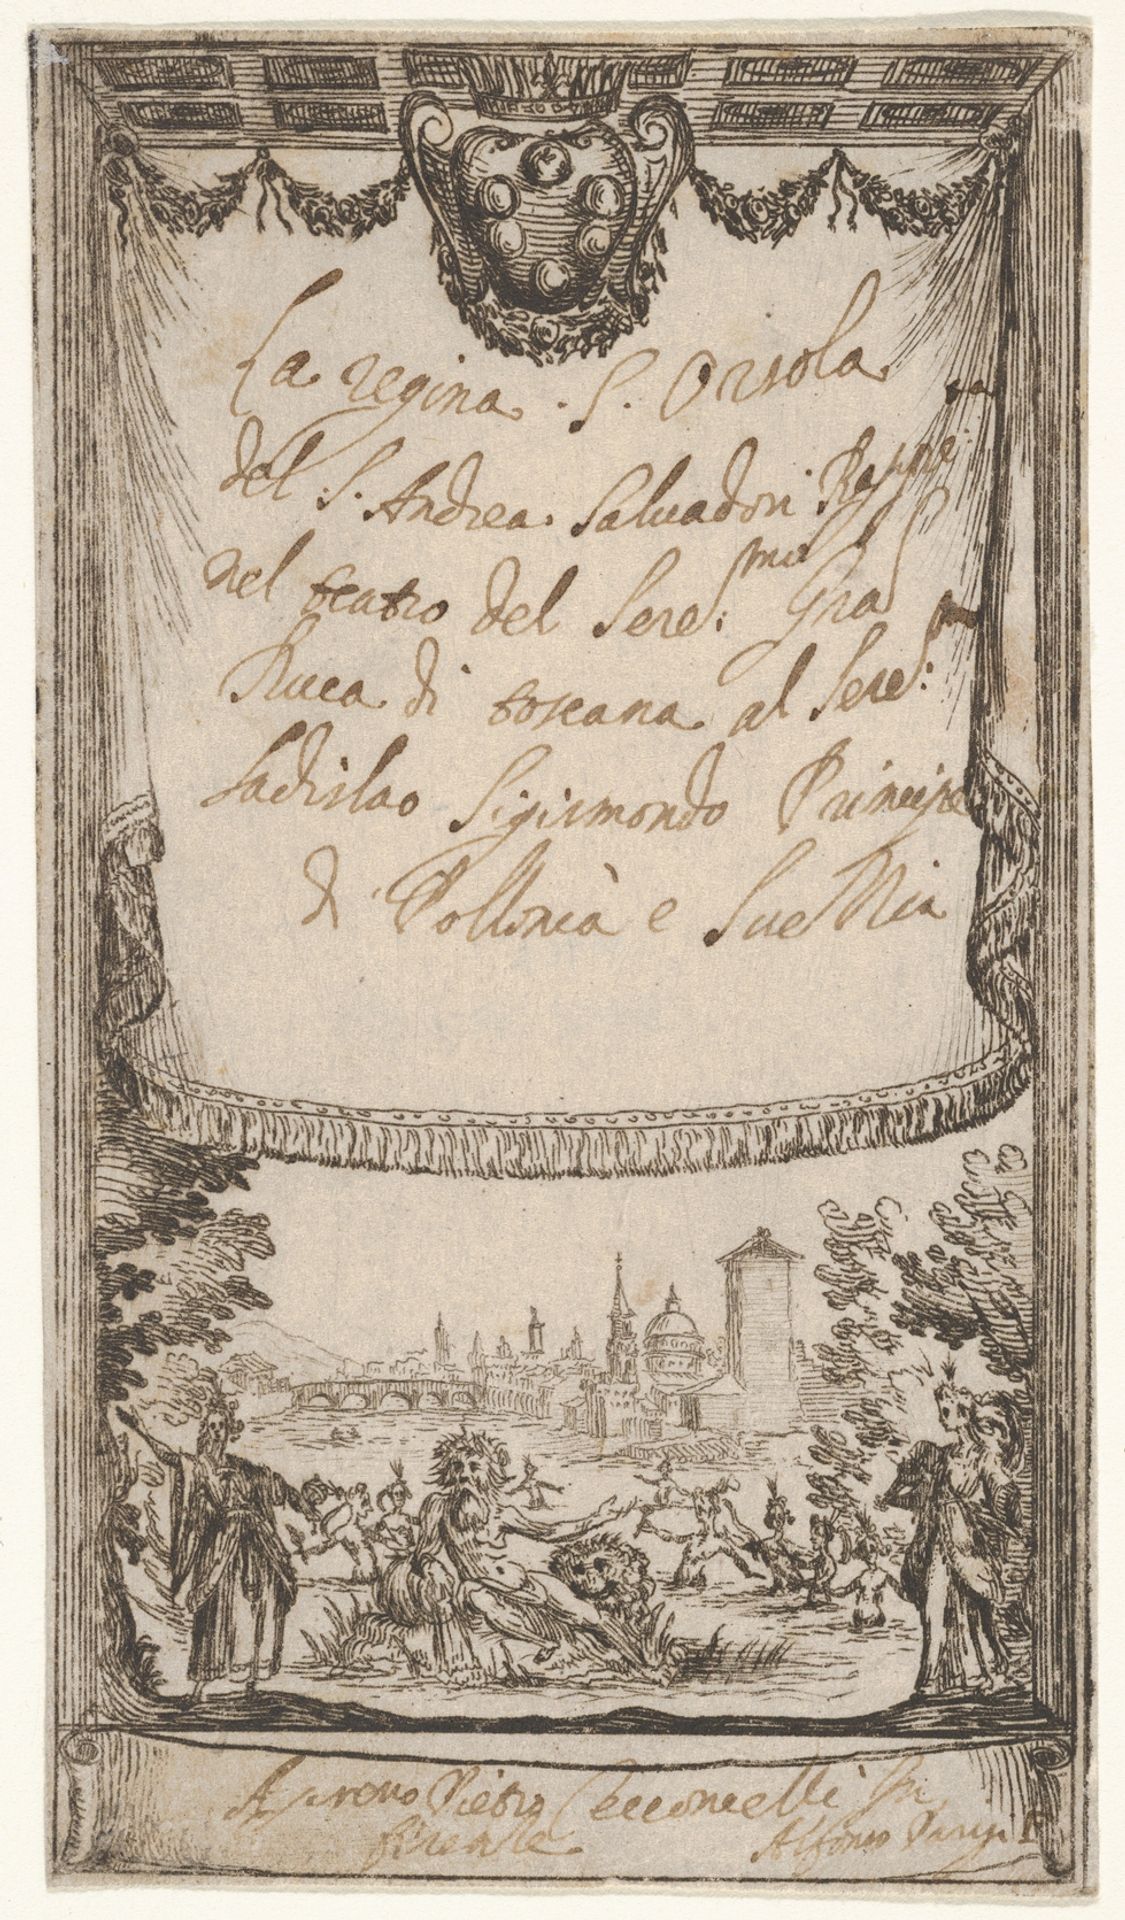 La regina . S. Orsola
del . S. Andrea . Salvadori Rappre sa
nel teatro del Sere: mo Gra
Duca di toscana al Sere: mo
Ladislao Sigismondo Principe
di Pollonia e Suettia
Apreso Pietro Cecconcelli In
firenze Alfonso Parigi F